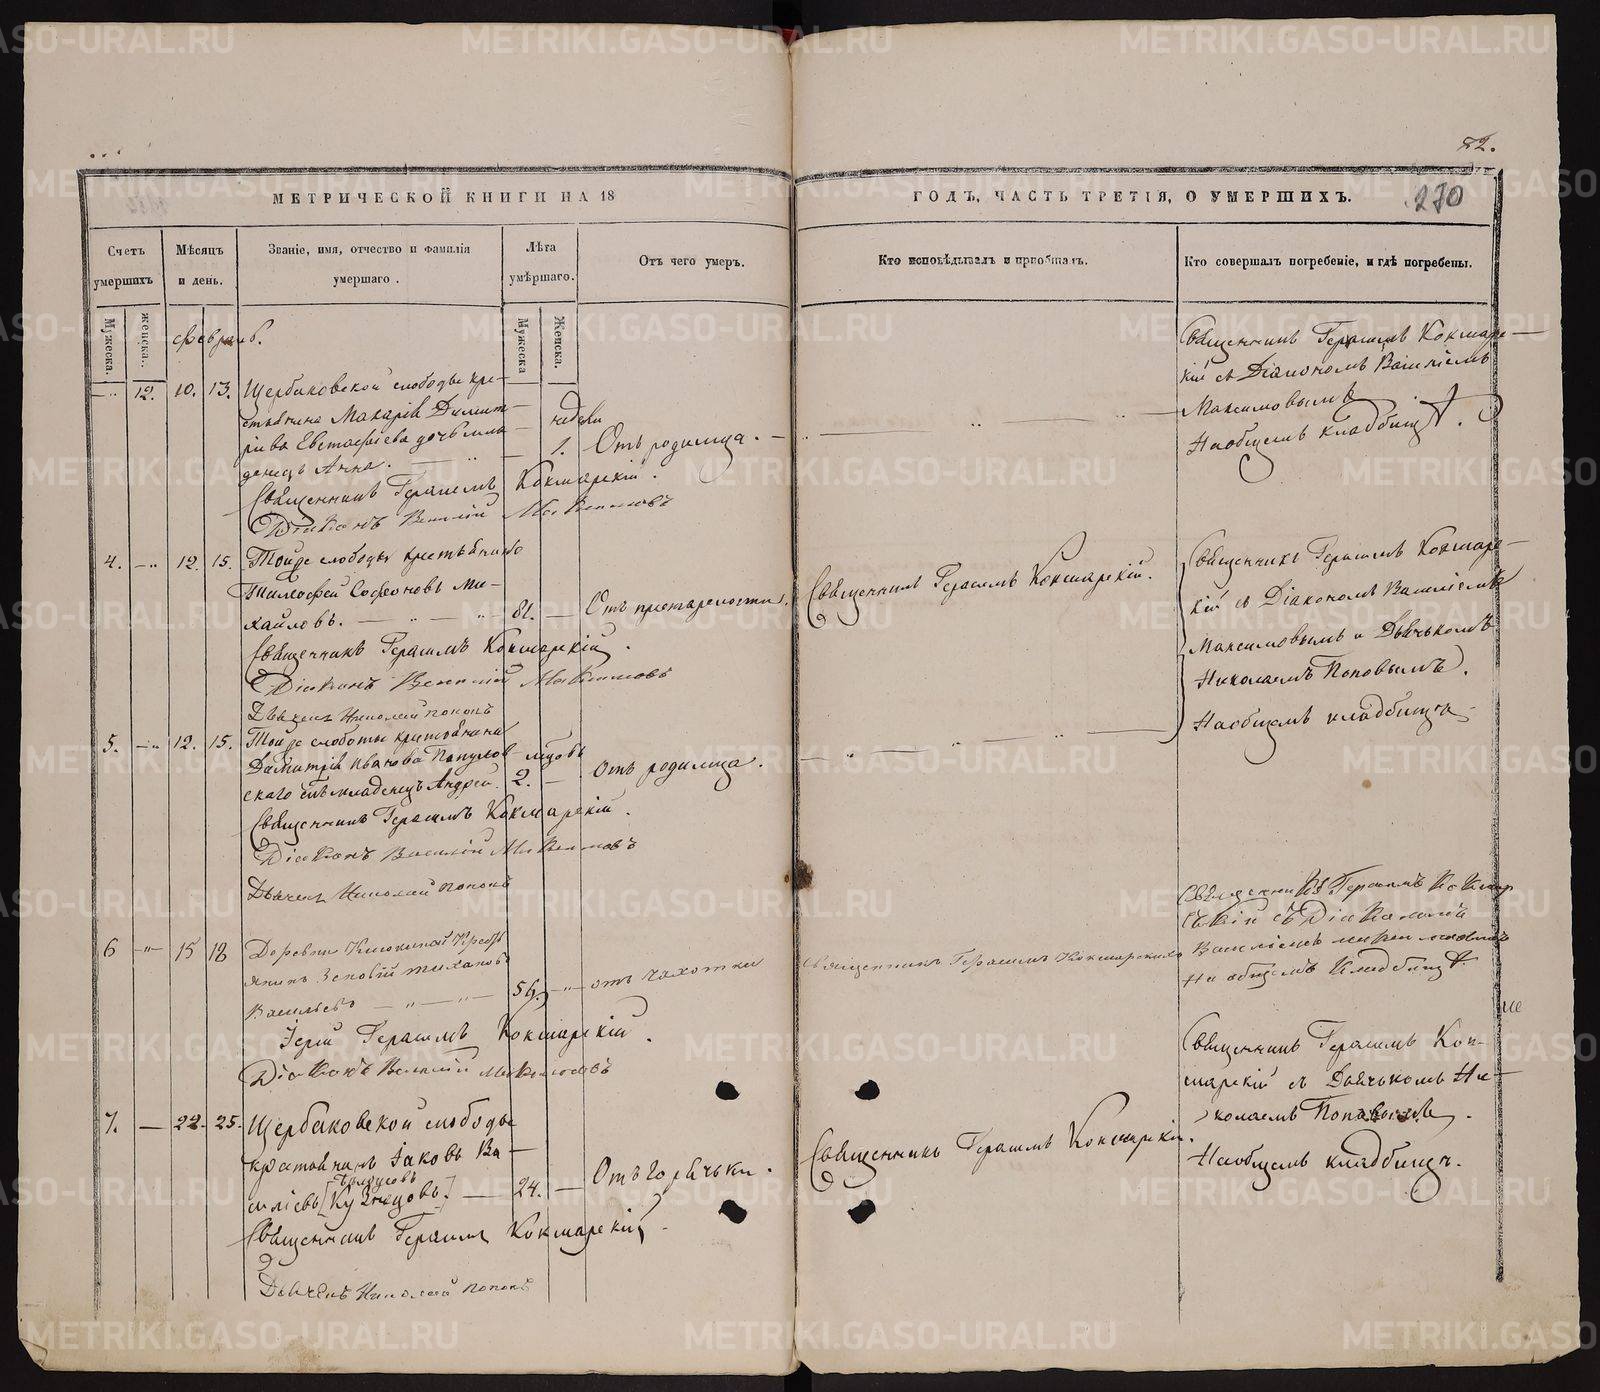 72.
МЕТРИЧЕСКОЙ КНИГИ НА 18
ГОДЪ, ЧАСТЬ ТРЕТІЯ, О УМЕРШИХЪ.
270
Счетъ умершихъ
Мѣсяцъ и день.
Званіе, имя, отчество и фамилія умершаго.
Лѣта умѣршаго.
Отъ чего умеръ.
Кто исповѣдывалъ и пріобщалъ.
Кто совершалъ погребеніе, и гдѣ погребены.
Мужеска.
женска.
Мужеска
Женска.
февраль.
12. 10. 13. Щербаковской слободы кре-
стьянина Макарія Димит-
ріева Евстафіева дочь мла-
денецъ Анна.
недели
1. Отъ родимца.
Священникъ Герасимъ Кокшар-
кій съ Діакономъ Василіемъ
Максимовымъ
На общемъ кладбищѣ.
Священникъ Герасимъ Кокшарскій.
Діаконъ Василій Максимовъ
4. 12. 15. Тойже слободы крестьянинъ
Тимофей Софроновъ Ми-
хайловъ. 81. Отъ престарелости.
Священникъ Герасимъ Кокшарскій.
Священникъ Герасимъ Кокшар-
кій съ Діакономъ Василіемъ
Максимовымъ и Дьячькомъ
Николаемъ Поповымъ.
На общемъ кладбищѣ
Священникъ Герасимъ Кокшарскій.
Діаконъ Василій Максимовъ
Дьячекъ Николай Поповъ
5. 12. 15. Тойже слободы крестьянина
Димитрія Иванова
скаго сынъ младенецъ Андрей.
мѣсцовъ
2. Отъ родимца.
Священникъ Герасимъ Кокшарскій.
Діаконъ Василій Максимовъ
Дьячекъ Николай Поповъ
6 15 18 Деревни Кресть
янинъ Зеновій Тихановъ
Васильевъ 56. отъ чахотки
Священникъ Герасимъ Кокшарскій
Священникъ Герасимъ Кокшар
скій съ Діакономъ
Василіемъ Максимовымъ
На общемъ кладбищѣ.
Іерей Герасимъ Кокшарскій.
Діаконъ Василій Максимовъ
7. 22. 25. Щербаковской слободы
крестьянинъ Іаковъ Ва-
силіевъ [Кузнецовъ] 24. Отъ горячьки.
Священникъ Герасимъ Кокшарскій.
Священникъ Герасимъ Кок-
шарскій съ Дьячькомъ Ни-
колаемъ Поповымъ.
На общемъ кладбищѣ.
Священникъ Герасимъ Кокшарскій.
Дьячекъ Николай Поповъ
METRIKI.GASO-URAL.RU